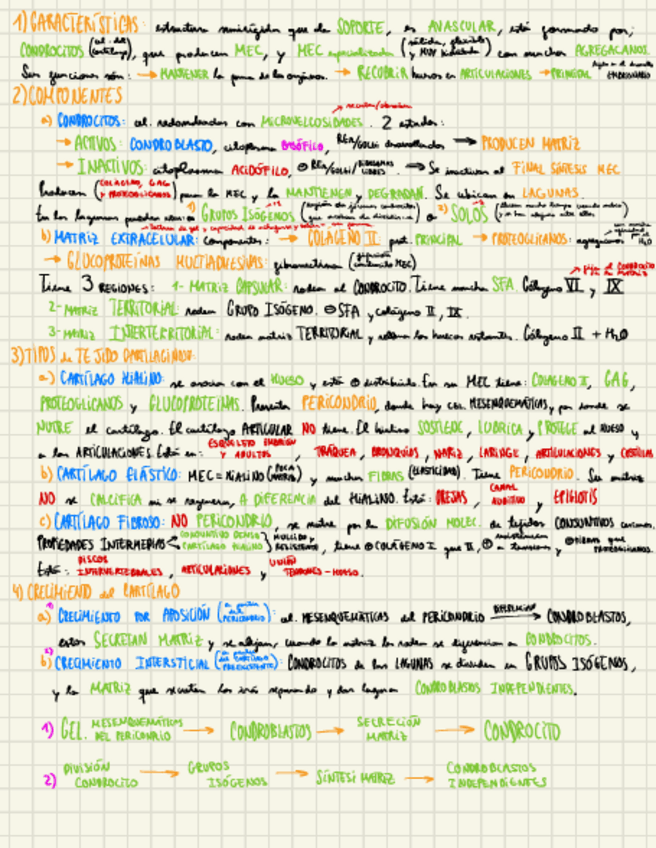 1) CARACTERÍSTICAS: estructura semirígida que da SOPORTE, es AVASCULAR, está formado por:
CONDROCITOS (cél. del cartílago), que producen MEC, y MEC especializada (sólida, flexible y MUY hidratada) con muchos AGREGACANOS.
Sus funciones son: → MANTENER la forma de los órganos. → RECUBRIR huesos en ARTICULACIONES → PRINCIPAL EMBRIONARIO
2) COMPONENTES
a) CONDROCITOS: cél. redondeadas con MICROVELLOSIDADES. 2 estados:
→ ACTIVOS: CONDROBLASTO, citoplasma BASÓFILO, RER/GOLGI desarrollados → PRODUCEN MATRIZ
→ INACTIVOS: citoplasma ACIDÓFILO, ⊖ RER/GOLGI/RIBOSOMAS LIBRES. → Se inactivan al FINAL SÍNTESIS MEC
Producen (COLÁGENO, GAG y PROTEOGLICANOS) para la MEC y la MANTIENEN y DEGRADAN. Se ubican en LAGUNAS.
En las lagunas pueden estar 1) GRUPOS ISÓGENOS o 2) SOLOS
b) MATRIZ EXTRACELULAR: componentes: → COLÁGENO II, prot. PRINCIPAL → PROTEOGLICANOS: agregacanos H₂O
→ GLUCOPROTEÍNAS MULTIADHESIVAS: fibronectina
Tiene 3 REGIONES: 1- MATRIZ CAPSULAR: rodea al CONDROCITO. Tiene mucha SFA. Colágeno VI y IX
2- MATRIZ TERRITORIAL: rodea GRUPO ISÓGENO. ⊖ SFA y colágeno II, IX.
3- MATRIZ INTERTERRITORIAL: rodea matriz TERRITORIAL y rellena los huecos restantes. Colágeno II + H₂O
3) TIPOS de TEJIDO CARTILAGINOSO:
a) CARTÍLAGO HIALINO: se asocia con el HUESO y está ⊕ distribuido. En su MEC tiene: COLÁGENO II, GAG,
PROTEOGLICANOS y GLUCOPROTEÍNAS. Presenta PERICONDRIO, donde hay cél. MESENQUEMÁTICAS, y por donde se
NUTRE el cartílago. El cartílago ARTICULAR NO tiene. El hialino SOSTIENE, LUBRICA y PROTEGE al HUESO y
a las ARTICULACIONES. Está en: ESQUELETO EMBRIÓN Y ADULTOS, TRÁQUEA, BRONQUIOS, NARIZ, LARINGE, ARTICULACIONES y COSTILLAS
b) CARTÍLAGO ELÁSTICO: MEC = HIALINO (POCA MATRIZ) y muchas FIBRAS (ELASTICIDAD). Tiene PERICONDRIO. Su matriz
NO se CALCIFICA ni se regenera, A DIFERENCIA del HIALINO. Está: OREJAS, CANAL AUDITIVO, y EPIGLOTIS
c) CARTÍLAGO FIBROSO: NO PERICONDRIO, se nutre por la DIFUSIÓN MOLEC. de tejidos CONJUNTIVOS cercanos.
PROPIEDADES INTERMEDIAS CONJUNTIVO DENSO CARTÍLAGO HIALINO } MULLIDO y RESISTENTE, tiene ⊕ COLÁGENO I que II, ⊕ resistencia a tensiones y ⊕ fibras que PROTEOGLICANOS.
Está: DISCOS INTERVERTEBRALES, ARTICULACIONES y UNIÓN TENDONES-HUESO.
4) CRECIMIENTO del CARTÍLAGO
1) a) CRECIMIENTO POR APOSICIÓN (a partir del PERICONDRIO): cél. MESENQUEMÁTICAS del PERICONDRIO → CONDROBLASTOS,
estos SECRETAN MATRIZ y se alejan, cuando la matriz los rodea se diferencian a CONDROCITOS.
2) b) CRECIMIENTO INTERSTICIAL (a partir del CARTÍLAGO PREEXISTENTE): CONDROCITOS de las LAGUNAS se dividen en GRUPOS ISÓGENOS,
y la MATRIZ que secretan los irá separando y dan lugar a CONDROBLASTOS INDEPENDIENTES.
1) CEL. MESENQUEMÁTICAS DEL PERICONDRIO → CONDROBLASTOS → SECRECIÓN MATRIZ → CONDROCITO
2) DIVISIÓN CONDROCITO → GRUPOS ISÓGENOS → SÍNTESI MATRIZ → CONDROBLASTOS INDEPENDIENTES